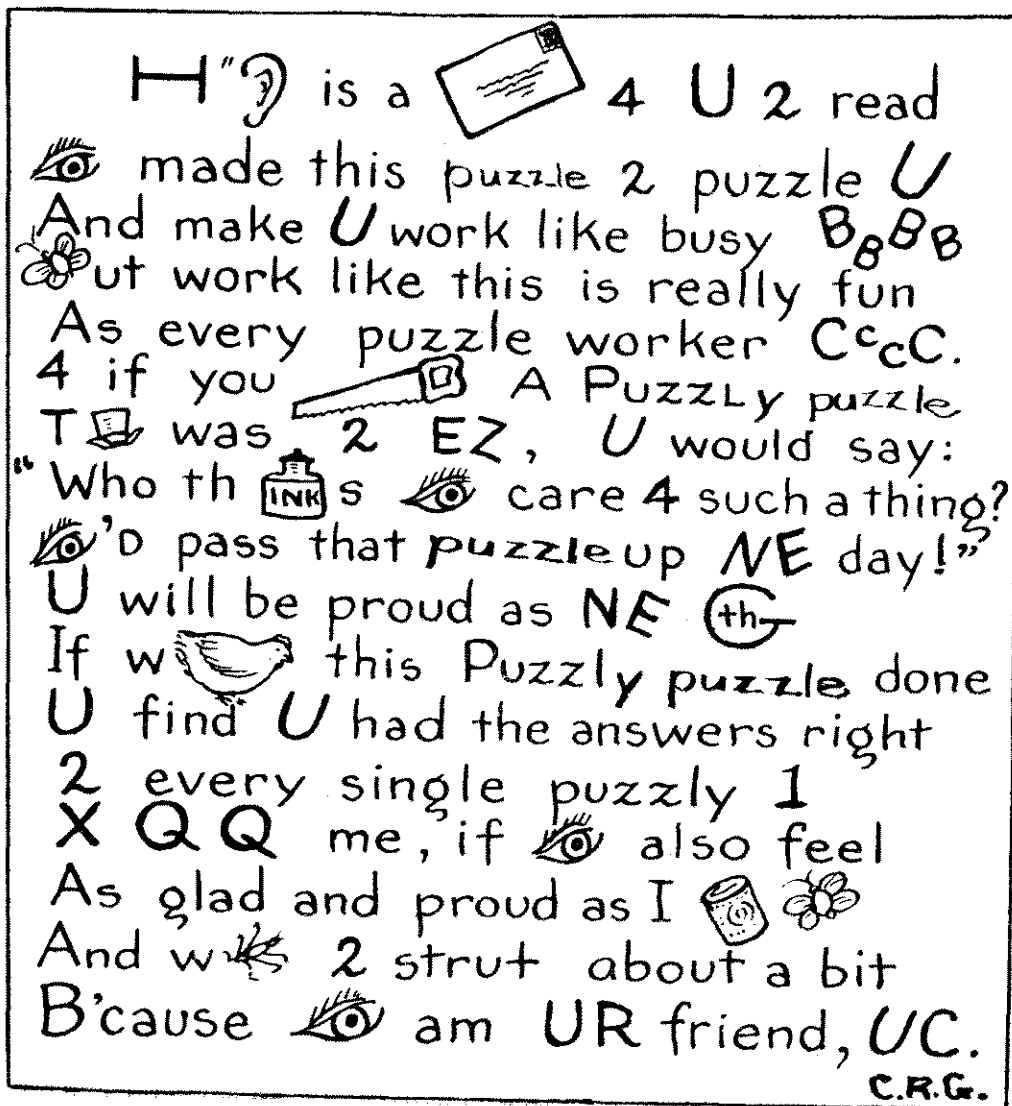 H" is a 4 U 2 read
made this puzzle 2 puzzle U
And make U work like busy B B B B
ut work like this is really fun
As every puzzle worker C c c C.
4 if you A Puzzly puzzle
T was 2 EZ, U would say:
"Who th INK s care 4 such a thing?
'D pass that puzzle up NE day!"
U will be proud as NE G th
If w this Puzzly puzzle done
U find U had the answers right
2 every single puzzly 1
X Q Q me, if also feel
As glad and proud as I
And w 2 strut about a bit
B'cause am UR friend, UC.
C.R.G.